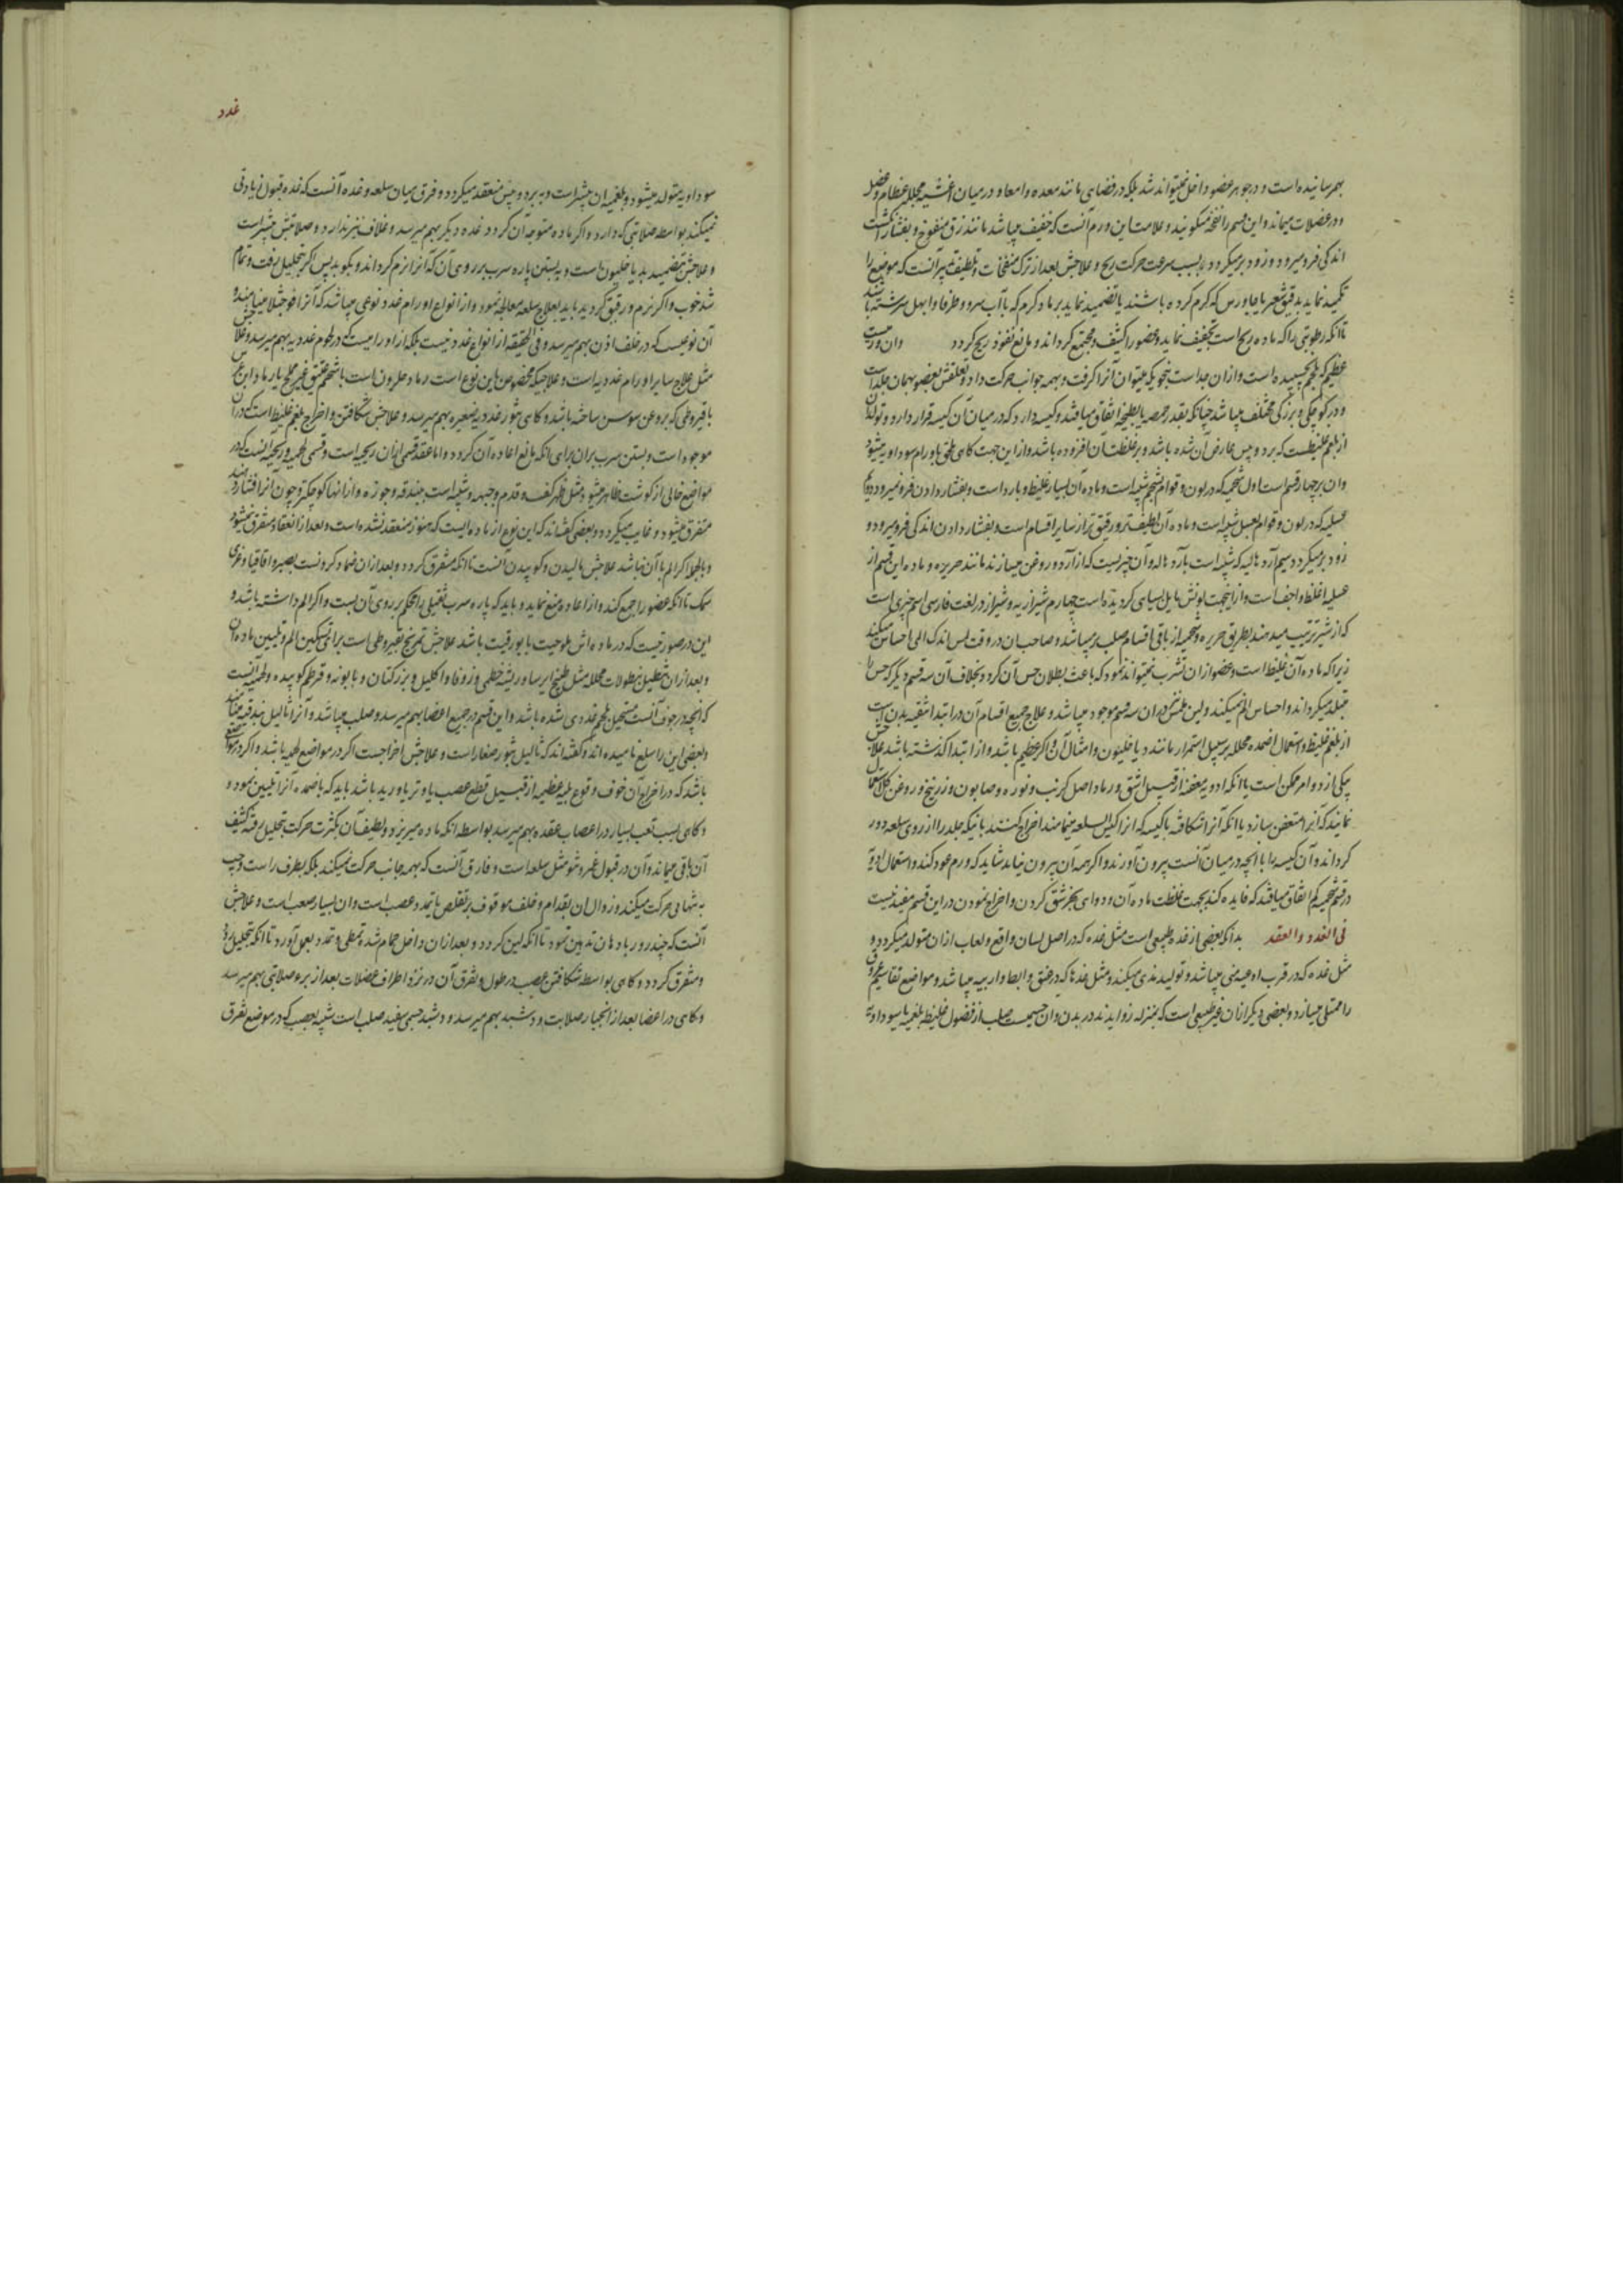 بهم رسانیده است و در جوهر عضو داخل نمیتواند شد بلکه در فضای مانند معده و امعا و در میان اغشیه مجلله عظام و عضل
و در عضلات میماند و این قسم را نفخه میگویند و علامت این ورم آنست که خفیف میباشد مانند زق منفوخ و بفشار انگشت
اندکی فرو میرود و زود برمیگردد بسبب سرعت حرکت ریح و علاجش بعد از ترک منفخات و تلطیف تدبیر آنست که موضع را
تکمید نماید بدقیق شعیر یا جاورس که گرم کرده باشند یا تضمید نماید برماد کرم که با آب سرو و طرفا و ابهل سرشته باشد
تا آنکه رطوبتی را که ماده ریح است تجفیف نماید و عضو را کثیف و مجتمع گرداند و مانع نفوذ ریح گردد وان ورمیست
عظیم که بلحم چسپیده است و از آن جداست بنحویکه میتوان آنرا گرفت و بهمه جوانب حرکت داد و تعلقش بعضو بهمان جلد است
و در کوچکی و بزرگی مختلف میباشد چنانکه بقدر حمصه یا بطیخه اتفاق میافتد و کیسه دارد که در میان آن کیسه قرار دارد و تولد آن
از بلغم غلیظست که برد و یبس عارض آن شده باشد و بر غلظت آن افزوده باشد و از این جهت گاهی ملحق باورام سوداویه میشود
وان بر چهار قسم است اول شحمیه که در لون و قوام بشحم شبیه است و ماده آن بسیار غلیظ و بارد است و بفشار دادن فرو نمیرود دویم
عسلیه که در لون و قوام بعسل شبیه است و ماده آن لطیف‌تر و رقیق‌تر از سایر اقسام است و بفشار دادن اندکی فرو میرود و
زود برمیگردد سیم آردهالیه که شبیه است بآردهاله و آن چیزیست که از آرد و روغن میسازند مانند حریره و ماده این قسم از
عسلیه اغلظ و اجف است و از اینجهت لونش مایل بسیاهی گردیده است چهارم شیرازیه و شیراز در لغت فارسی اسم چیزی است
که از شیر ترتیب میدهند بطریق حریره و شحمیه از باقی اقسام صلب‌تر میباشد و صاحب آن در وقت لمس اندک المی احساس میکند
زیرا که ماده آن غلیظ است و عضو از آن تشرب نمیتواند نمود که باعث بطلان حس آن گردد بخلاف آن سه قسم دیگر که حس را
متبلد میگرداند و احساس الم نمیکنند و لین ملمس در آن سه قسم موجود میباشد و علاج جمیع اقسام آن در ابتدا تنقیه بدن است
از بلغم غلیظ و استعمال اضمده محلله بر سبیل استمرار مانند دیاخلیون و امثال آن و اگر عظیم باشد و از ابتدا گذشته باشد علاجش
بیکی از دو امر ممکن است یا آنکه ادویه معفنه از قبیل اشق و رماد اصل کرنب و نوره و صابون و زرنیخ و روغن گل استعمال
نمایند که آنرا متعفن سازد یا آنکه آنرا شکافته با کیسه که آنرا کیس السلعه مینامند اخراج کنند بانیکه جلد را از روی سلعه دور
گرداند و آن کیسه را با آنچه در میان آنست بیرون آورند و اگر همه آن بیرون نیاید شاید که ورم عود کند و استعمال ادویه
در قسم شحمیه کم اتفاق میافتد که فایده کند بجهت غلظت ماده آن و دوای بجز شق کردن و اخراج نمودن در این قسم مفید نیست
فی الغدد والعقد بدانکه بعضی از غده طبیعی است مثل غده که در اصل لسان واقع و لعاب از آن متولد میگردد و
مثل غده که در قرب اوعیه منی میباشد و تولید مذی میکند و مثل غدها که در عنق و ابط و اربیه میباشد و مواضع تقاسیم عروق
را ممتلی میسازد و بعضی دیگر از آن غیر طبیعی است که بمنزله زوایدند در بدن وان جسمیست صلب از فضول غلیظ بلغمیه یا سوداویه
غدد
سوداویه متولد میشود و بلغمیه آن بیشتر است و به برد و یبس منعقد میگردد و فرق میان سلعه و غده آنست که غده قبول زیادتی
نمیکند بواسطه صلابتی که دارد و اگر ماده متوجه آن گردد غده دیگر بهم میرسد و غلاف نیز ندارد و صلابتش بیشتر است
و علاجش تضمید بدیاخلیون است و به بستن پاره سرب بر روی آن که آنرا نرم گرداند و بکوبد پس اگر بتحلیل رفت و تمام
شد خوب و اگر نرم و رقیق گردید باید بعلاج سلعه معالجه نمود و از انواع اورام غدد نوعی میباشد که آنرا فوجثلا مینامند و
آن نوعیست که در خلف اذن بهم میرسد و فی الحقیقه از انواع غدد نیست بلکه از اورامیست که در لحوم غددیه بهم میرسد و علاجش
مثل علاج سایر اورام غددیه است و علاجیکه مخصوص باین نوع است رماد حلزون است با شحم عتیق غیر مملح یا رماد ابن عرس
با قیروطی که بروغن سوسن ساخته باشند و گاهی بثور غددیه شعیره بهم میرسد و علاجش شکافتن و اخراج بلغم غلیظ است که در آن
موجود است و بستن سرب بر آن برای آنکه مانع اعاده آن گردد و اما عقد قسمی از آن ریحیه است و قسمی لحمیه و ریحیه آنست که در
مواضع خالی از گوشت ظاهر میشود مثل ظهر کف و قدم و جبهه و شبیه است ببندقه و جوزه و از آنها کوچکتر و چون آنرا افشار دهند
متفرق میشود و غایب میگردد و بعضی گفته‌اند که این نوع از ماده ایست که هنوز منعقد نشده است و بعد از انعقاد متفرق نمیشود
و بالجمله اگر الم با آن نباشد علاجش مالیدن و کوبیدن آنست تا آنکه متفرق گردد و بعد از آن ضماد کردنست بصبر و اقاقیا و غری
سمک تا آنکه عضو را جمع کند و از اعاده منع نماید و باید که پاره سرب ثقیلی را محکم بر روی آن بست و اگر الم داشته باشد و
این در صورتیست که در ماده اش ملوحیت یا بورقیت باشد علاجش تمریخ بقیروطی است برای تسکین الم و تلیین ماده آن
و بعد از آن تنطیل بنطولات محلله مثل طبیخ ایرسا و ریشه خطمی و زوفا و اکلیل و بزر کتان و بابونه و قرطم کوبیده و لحمیه آنست
که آنچه در جوف آنست مستحیل بلحم غددی شده باشد و این قسم در جمیع اعضا بهم میرسد و صلب میباشد و آنرا ثآلیل بندقیه مینامند
و بعضی این را سلع نامیده‌اند و گفته‌اند که ثآلیل بثور صغار است و علاجش اخراجست اگر در مواضع لحمیه باشد و اگر در موضعی
باشد که در اخراج آن خوف وقوع بلیه عظیمه از قبیل قطع عصب یا وتر یا ورید باشد باید که باضمده آنرا تلیین نمود و
و گاهی بسبب تعب بسیار در اعصاب عقده بهم میرسد بواسطه آنکه ماده میریزد و لطیف آن بکثرت حرکت بتحلیل رفته کثیف
آن باقی میماند و آن در قبول غمز و نتو مثل سلعه است و فارق آنست که بهمه جانب حرکت نمیکند بلکه بطرف راست و چپ
به تنهایی حرکت میکند و زوال آن بقدام و خلف موقوف بر تقلص یا تمدد عصب است و آن بسیار صعب است و علاجش
آنست که چند روز بادهان تدهین نمود تا آنکه لین گردد و بعد از آن داخل حمام شده تمطی و تمدد بعمل آورد تا آنکه بتحلیل رود
و متفرق گردد و گاهی بواسطه شکافتن عصب در طول و تفرق آن در نزد اطراف عضلات بعد از برء صلابتی بهم میرسد
و گاهی در اعضا بعد از انجبار صلابت و دشبد بهم میرسد و دشبد جسمی سفید صلب است شبیه بعصب که در موضع تفرق